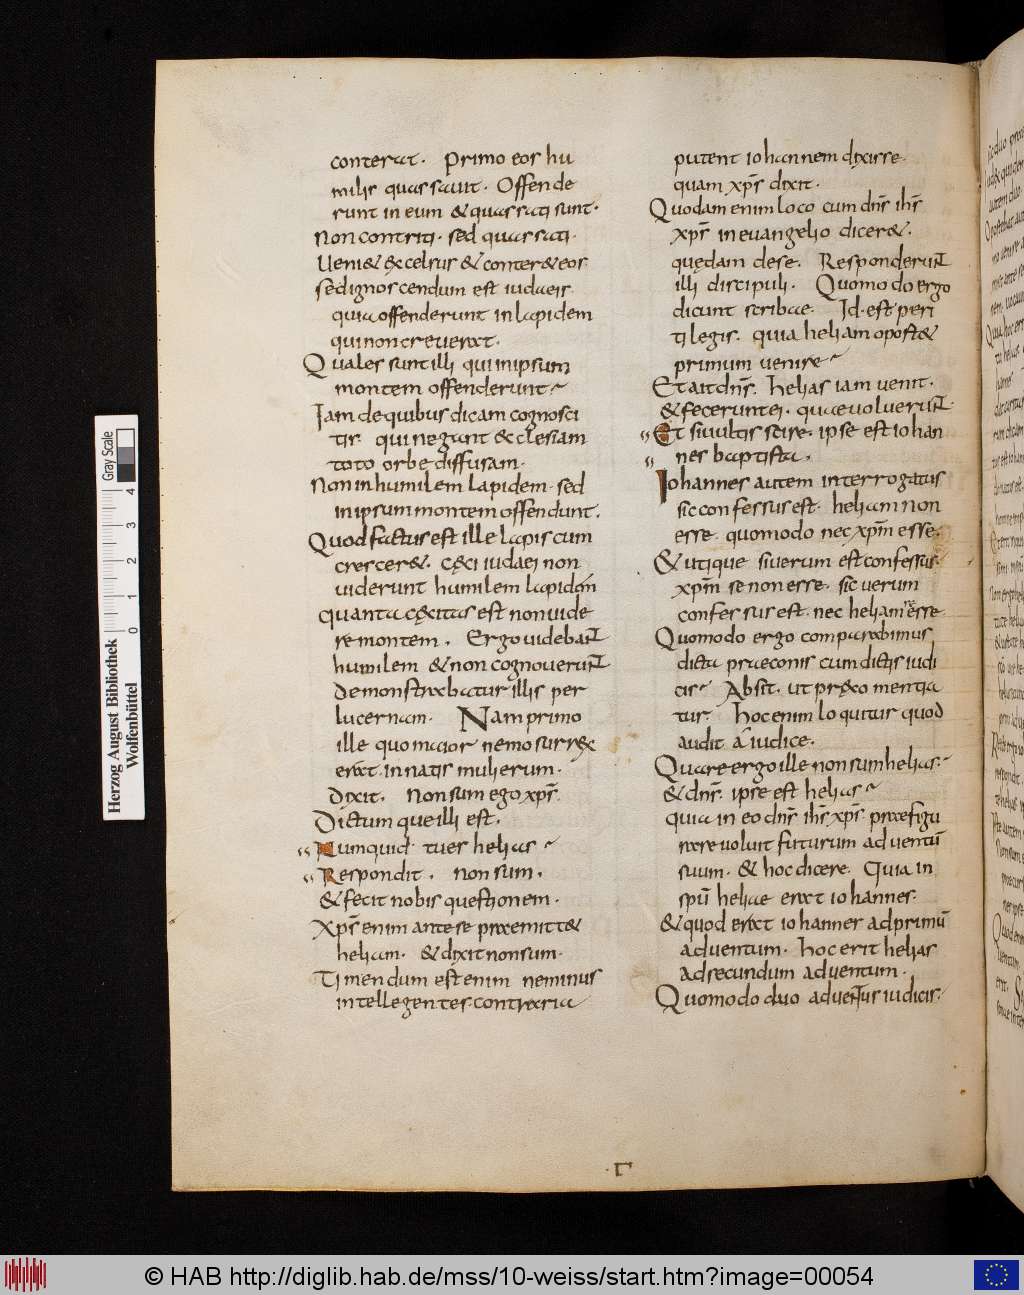 conterat. Primo eos hu
milis quassauit. Offende
runt in eum & quassati sunt.
non contriti. sed quassati.
Ueni& excelsus & conter& eos
sed ignoscendum est iudaeis
quia offenderunt in lapidem
qui non creuerat.
Quales sunt illi qui in ipsum
montem offenderunt
Iam de quibus dicam cognosci
tis. qui negant ecclesiam
toto orbe diffusam.
Non in humilem lapidem. sed
in ipsum montem offendunt.
Quod factus est ille lapis cum
crescer&. cęci iudaei non
uiderunt humilem lapidem
quanta cęcitas est non uide
re montem. Ergo uidebant
humilem & non cognouerunt
demonstrabatur illis per
lucernam. Nam primo
ille quo maior nemo surrex
erat. in natis mulierum.
dixit. Non sum ego xp̄s.
Dictum que illi est.
Numquid tu es helias
Respondit. non sum.
& fecit nobis questionem.
Xp̄s enim ante se praemitt&
heliam. & dixit non sum.
Timendum est enim ne minus
intellegentes contraria
putent iohannem dixisse.
quam xp̄s dixit.
Quodam enim loco cum dn̄s ih̄s
xp̄s in euangelio dicer&.
quędam de se. Responderunt
illi discipuli. Quomodo ergo
dicunt scribae. Id. est peri
ti legis. quia heliam oport&
primum uenire
Et ait dn̄s. Helias iam uenit.
& fecerunt ei. quae uoluerunt.
Et si uultis scire. ipse est iohan
nes baptista.
Iohannes autem interrogatus
sic confessus est. heliam non
esse. quomodo nec xpm̄ esse.
& utique si uerum est confessus.
xpm̄ se non esse. sic uerum
confessus est. nec heliam se esse
Quomodo ergo comparabimus
dicta praeconis cum dictis iudi
cis Absit. ut praeco mentia
tur. hoc enim loquitur quod
audit a iudice.
Quare ergo ille non sum helias.
& dn̄s. ipse est helias
quia in eo dn̄s ih̄s xp̄s. praefigu
rare uoluit futurum aduentū
suum. & hoc dicere. Quia in
spū heliae erat iohannes.
& quod erat iohannes ad primū
aduentum. hoc erit helias
ad secundum aduentum.
Quomodo duo aduentus iudicis.
Herzog August Bibliothek
Wolfenbüttel
0 1 2 3 4
Gray Scale
© HAB http://diglib.hab.de/mss/10-weiss/start.htm?image=00054